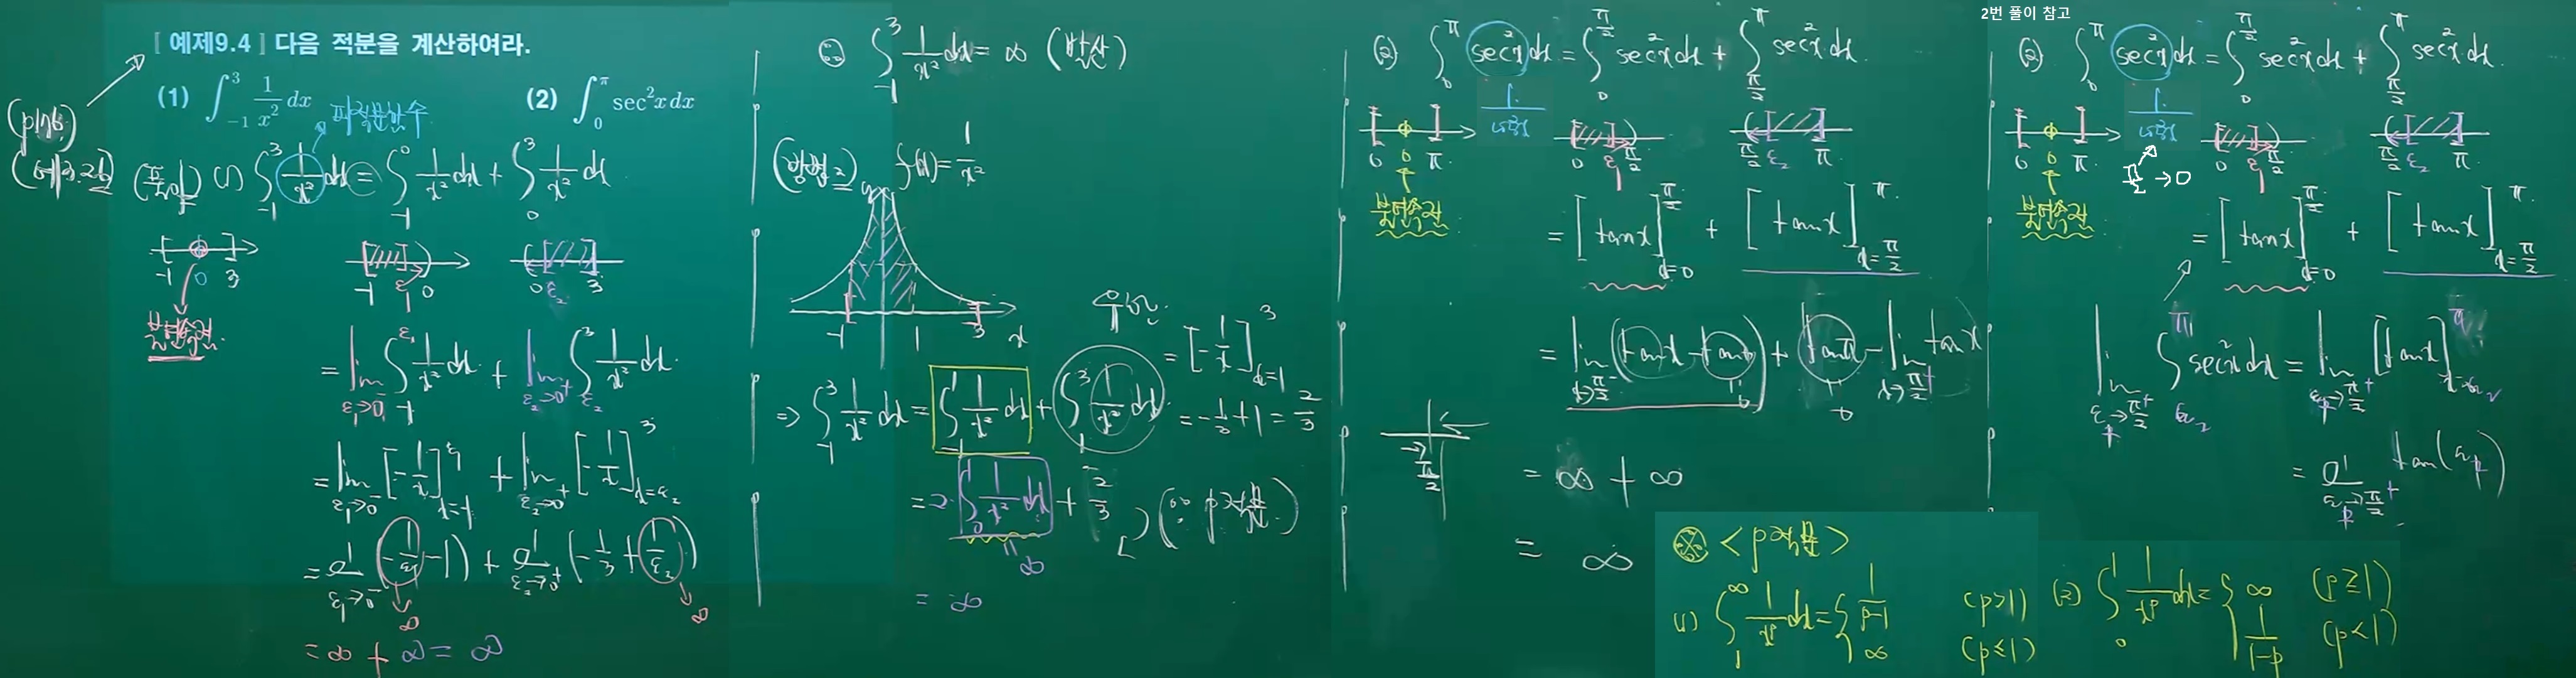 [예제9.4] 다음 적분을 계산하여라.
(1) ∫_{-1}^{3} 1/x² dx (2) ∫_{0}^{π} sec²x dx
피적분함수
(p176)
(풀이) (1) ∫_{-1}^{3} 1/x² dx = ∫_{-1}^{0} 1/x² dx + ∫_{0}^{3} 1/x² dx
-1 0 3
-1 ε₁ 0
0 ε₂ 3
불연속점
= lim_{ε₁→0⁻} ∫_{-1}^{ε₁} 1/x² dx + lim_{ε₂→0⁺} ∫_{ε₂}^{3} 1/x² dx
= lim_{ε₁→0⁻} [-1/x]_{x=-1}^{ε₁} + lim_{ε₂→0⁺} [-1/x]_{x=ε₂}^{3}
= lim_{ε₁→0⁻} (-1/ε₁ - 1) + lim_{ε₂→0⁺} (-1/3 + 1/ε₂)
∞ ∞
= ∞ + ∞ = ∞
∴ ∫_{-1}^{3} 1/x² dx = ∞ (발산)
(방법2) f(x) = 1/x²
-1 1 3 x
우함수
⇒ ∫_{-1}^{3} 1/x² dx = ∫_{-1}^{1} 1/x² dx + ∫_{1}^{3} 1/x² dx
= [-1/x]_{x=1}^{3}
= -1/3 + 1 = 2/3
= 2 ∫_{0}^{1} 1/x² dx + 2/3 (∵ p적분)
∞
= ∞
(2) ∫_{0}^{π} sec²x dx = ∫_{0}^{π/2} sec²x dx + ∫_{π/2}^{π} sec²x dx
1/cos²x
0 π
0 ε₁ π/2
π/2 ε₂ π
불연속점
= [tanx]_{x=0}^{π/2} + [tanx]_{x=π/2}^{π}
= lim_{x→π/2⁻} (tanx - tan0) + tanπ - lim_{x→π/2⁺} tanx
0 0
π/2
= ∞ + ∞
= ∞
2번 풀이 참고
(2) ∫_{0}^{π} sec²x dx = ∫_{0}^{π/2} sec²x dx + ∫_{π/2}^{π} sec²x dx
1/cos²x
0 π
0 ε₁ π/2
π/2 ε₂ π
π/2 → 0
불연속점
= [tanx]_{x=0}^{π/2} + [tanx]_{x=π/2}^{π}
※ <p적분>
(1) ∫_{1}^{∞} 1/x^p dx = { 1/(p-1) (p>1)
∞ (p≤1)
(2) ∫_{0}^{1} 1/x^p dx = { ∞ (p≥1)
1/(1-p) (p<1)